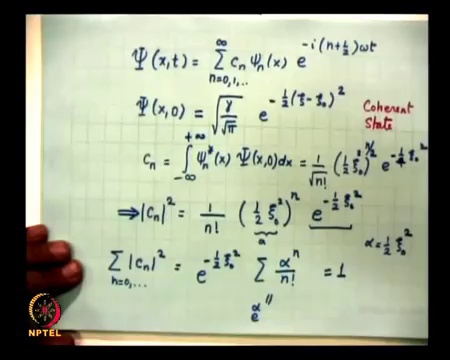 Ψ(x,t) = Σ_{n=0,1,..}^{∞} c_n ψ_n(x) e^{-i(n+1/2)ωt}
Ψ(x,0) = √(γ/√π) e^{-1/2(ξ-ξ_0)^2}
Coherent State
c_n = ∫_{-∞}^{+∞} ψ_n^*(x) Ψ(x,0)dx = 1/√n! (1/2 ξ_0^2)^{n/2} e^{-1/4 ξ_0^2}
⇒|c_n|^2 = 1/n! (1/2 ξ_0^2)^n e^{-1/2 ξ_0^2}
α α=1/2 ξ_0^2
Σ_{n=0,...} |c_n|^2 = e^{-1/2 ξ_0^2} Σ α^n/n! = 1
e^α
NPTEL